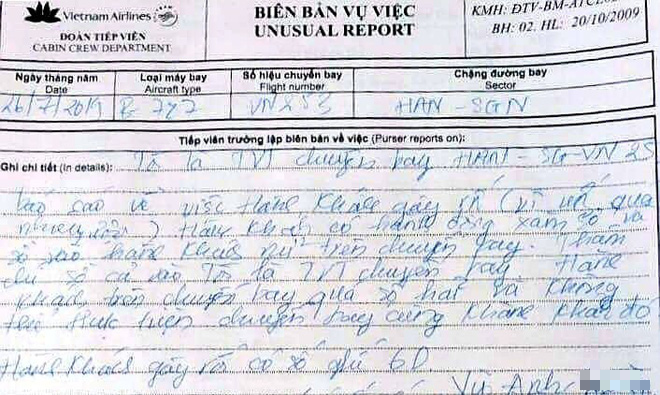 Vietnam Airlines
ĐOÀN TIẾP VIÊN
CABIN CREW DEPARTMENT
BIÊN BẢN VỤ VIỆC
UNUSUAL REPORT
KMH: ĐTV-BM-ATCL
BH: 02. HL: 20/10/2009
Ngày tháng năm
Date
Loại máy bay
Aircraft type
Số hiệu chuyến bay
Flight number
Chặng đường bay
Sector
26/7/2019 B 787 VN253 HAN - SGN
Tiếp viên trưởng lập biên bản về việc (Purser reports on):
Ghi chi tiết (In details): Tôi là TVT chuyến bay HAN - SG - VN 25
báo cáo về việc Hành Khách gây rối (vì uống quá
nhiều rượu) Hành Khách có hành động xàm sỡ và
sờ vào hành khách nữ trên chuyến bay. Thậm
chí sờ cả vào Tôi là TVT chuyến bay. Hành
Khách trên chuyến bay quá sợ hãi và không
thể thực hiện chuyến bay cùng Khách đó
Hành Khách gây rối có số ghế 6D.
Vũ Anh